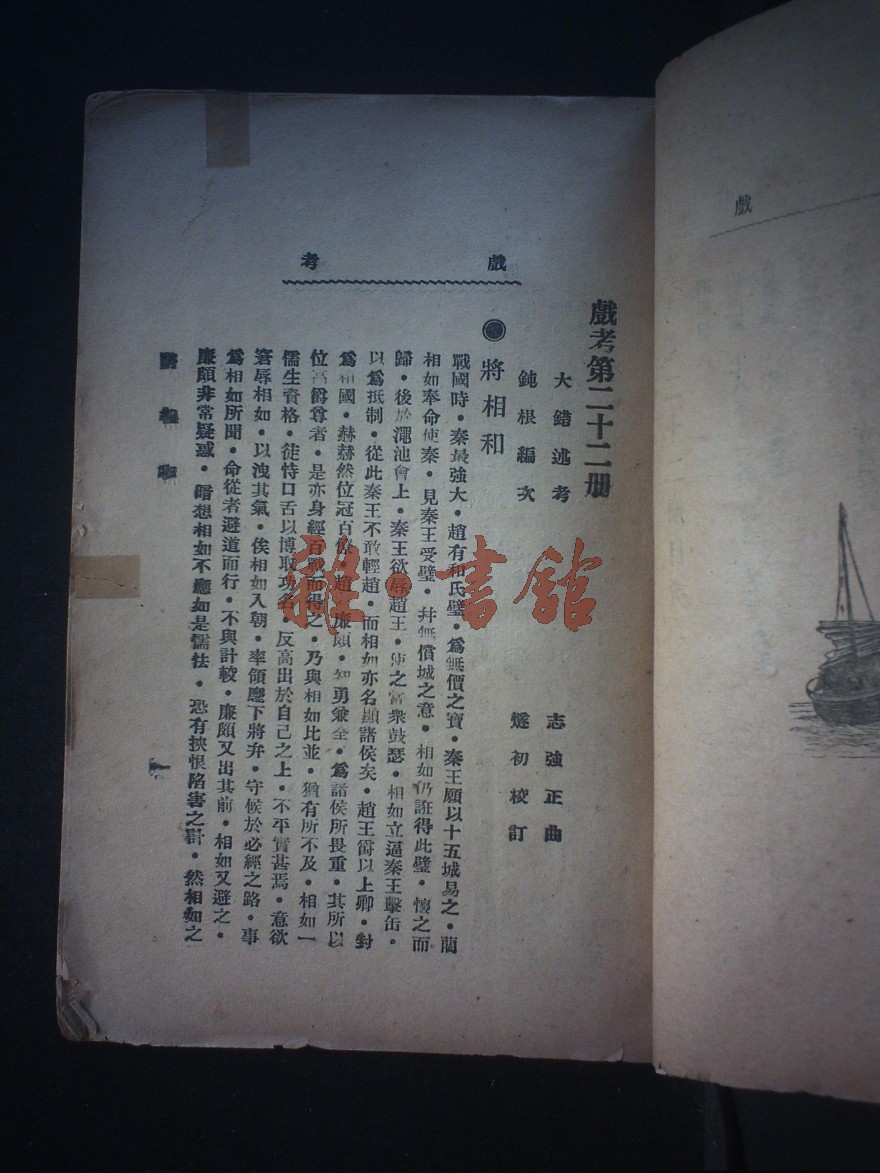 戲考
戲考第二十二册
大錯述考
鈍根編次
志強正曲
燧初校訂
將相和
戰國時•秦最強大•趙有和氏璧•爲無價之寶•秦王願以十五城易之•藺
相如奉命使秦•見秦王受璧•幷無償城之意•相如仍誑得此璧•懷之而
歸•後於澠池會上•秦王欲辱趙王•使之當衆鼓瑟•相如立逼秦王擊缶•
以爲抵制•從此秦王不敢輕趙•而相如亦名顯諸侯矣•趙王爵以上卿•對
爲相國•赫赫然位冠百僚•趙將廉頗•知勇兼全•爲諸侯所畏重•其所以
位高爵尊者•是亦身經百戰而得之•乃與相如比並•猶有所不及•相如一
儒生資格•徒恃口舌以博取功名•反高出於自己之上•不平實甚焉•意欲
窘辱相如•以洩其氣•俟相如入朝•率領麾下將弁•守候於必經之路•事
爲相如所聞•命從者避道而行•不與計較•廉頗又出其前•相如又避之•
廉頗非常疑惑•暗想相如不應如是懦怯•恐有挾恨陷害之舉•然相如之
一
戲
雜•書館